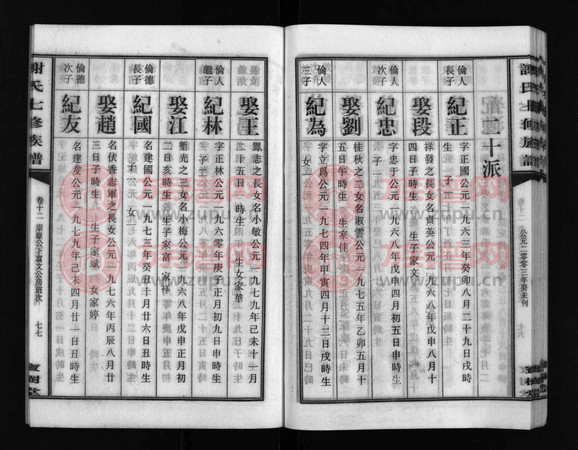 謝氏七修族譜
卷十二
公元二零零三年癸未刊
七六
紀二十派
倫人長子
紀正
字正國公元一九六三年癸卯八月二十九日戌時生
娶段
祥發之長女名貞英公元一九六八年戊申八月十四日子時生 生子家文
倫人次子
紀忠
字忠于公元一九六八年戊申四月初五日申時生 子一
娶劉
桂秋之二女名淑雲公元一九七五年乙卯五月十五日午時生 生子家佳
倫人三子
紀為
字立爲公元一九七四年甲寅四月十三日戌時生 女一
娶王
鳳志之長女名小敏公元一九七九年己未十一月二十五日時生 生女家華
倫人繼子
紀林
字正林公元一九六〇年庚子正月初九日申時生
娶江
朝光之三女名小梅公元一九六八年戊申正月初二日亥時生 生子家富 家
倫德長子
紀國
名建國公元一九七三年癸丑十月廿六日丑時生
娶趙
名伏香志軍之長女公元一九七六年丙辰八月廿三日子時生 生子家斌 女家婷
倫德次子
紀友
名建友公元一九七九年己未四月廿一日丑時生
謝氏七修族譜
卷十二 崇嶽公下富文公房班次
七七
寶樹堂